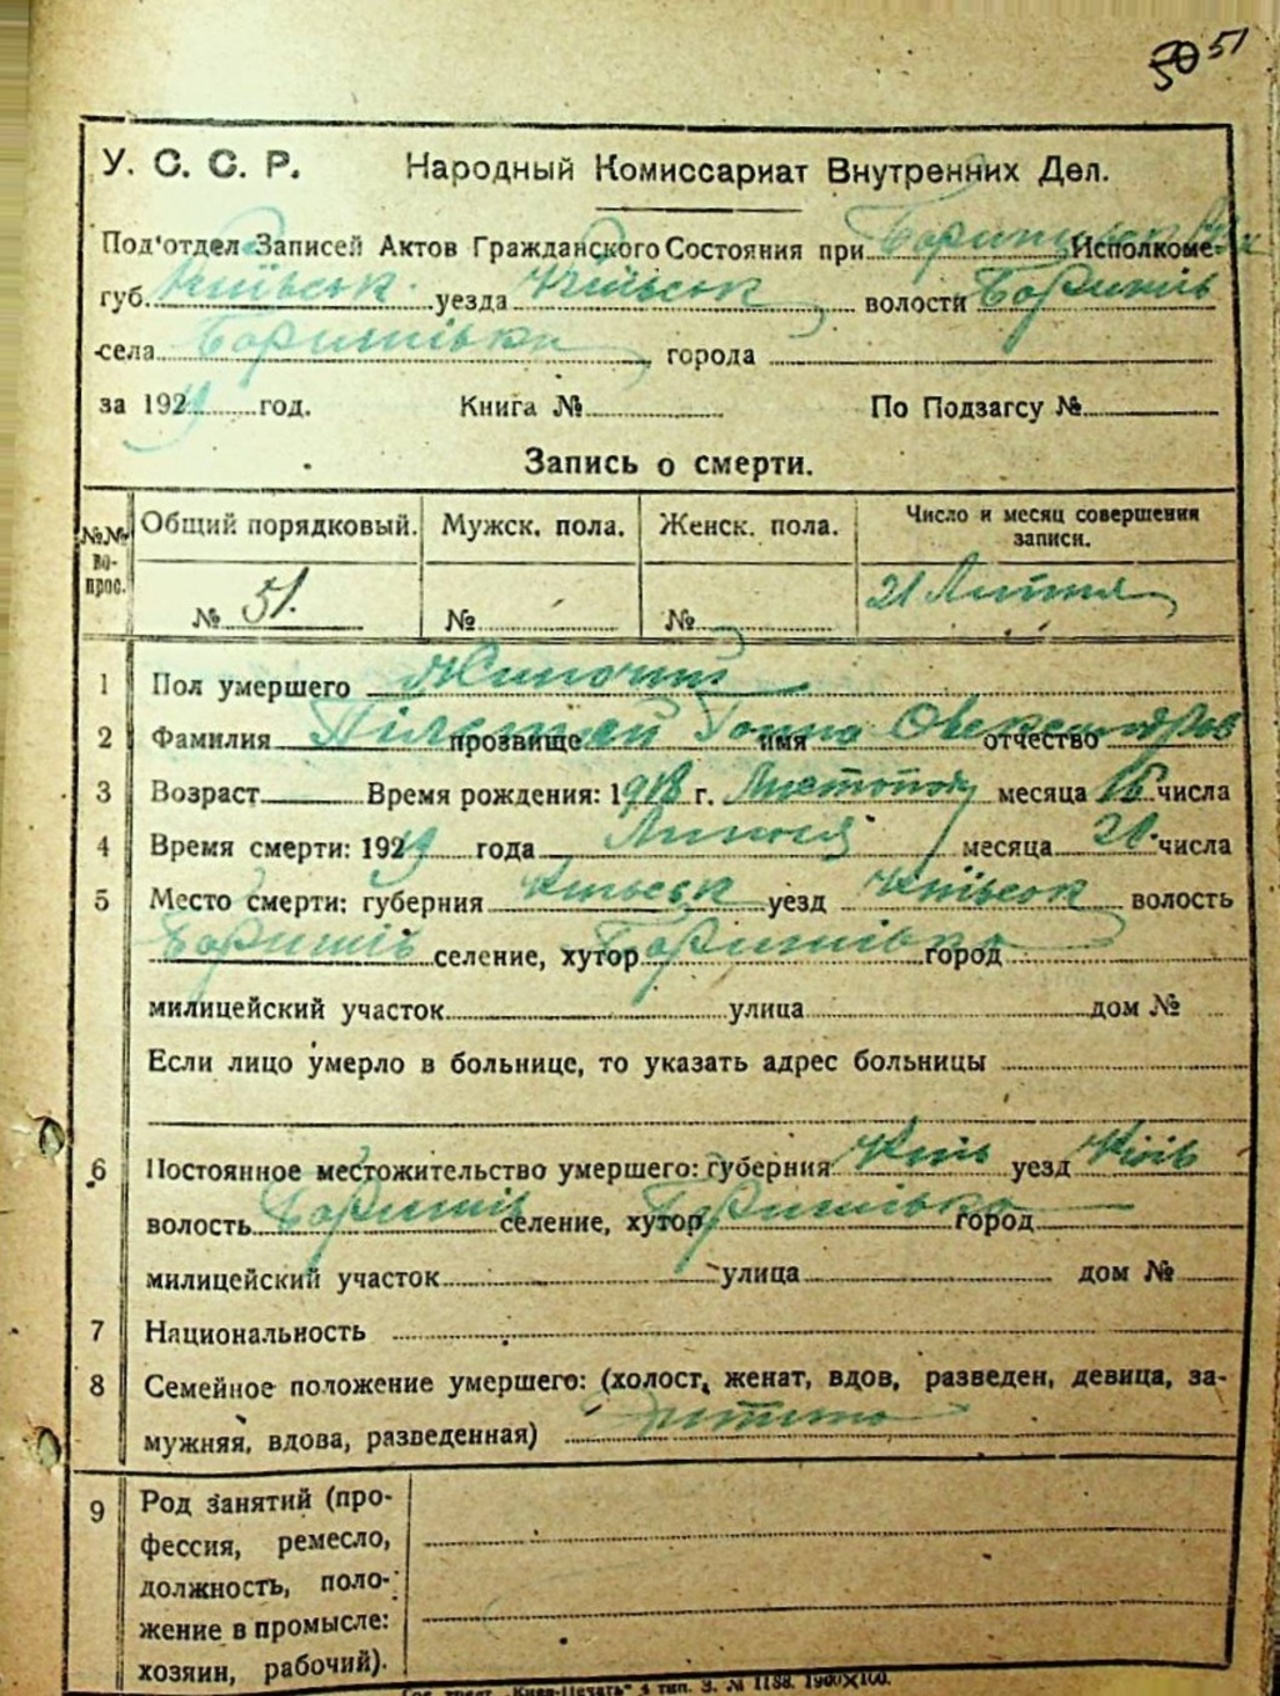 50 51
У. С. С. Р. Народный Комиссариат Внутренних Дел.
Под'отдел Записей Актов Гражданского Состояния при Исполкоме
губ. Київськ. уезда Київськ волости
села города
за 192 год. Книга № По Подзагсу №
Запись о смерти.
№№ во-прос. Общий порядковый. Мужск. пола. Женск. пола. Число и месяц совершения записи.
№ 51. № № 21 Липня
1 Пол умершего Жиночий
2 Фамилия прозвище Ганна имя отчество
3 Возраст Время рождения: 1918 г. Листопад месяца 15 числа
4 Время смерти: 192 года Липня месяца числа
5 Место смерти: губерния Київськ уезд Київськ волость
селение, хутор город
милицейский участок улица дом №
Если лицо умерло в больнице, то указать адрес больницы
6 Постоянное местожительство умершего: губерния Київ уезд Київ
волость селение, хутор город
милицейский участок улица дом №
7 Национальность
8 Семейное положение умершего: (холост, женат, вдов, разведен, девица, за-
мужняя, вдова, разведенная) Дитина
9 Род занятий (про-
фессия, ремесло,
должность, поло-
жение в промысле:
хозяин, рабочий).
Гос. трест „Киев-Печать" 4 тип. З. № 1188. 1900×100.